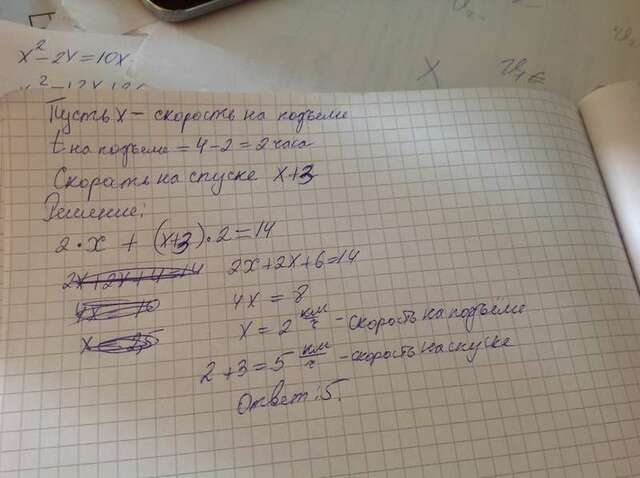 x² - 2x = 10x
X
Пусть X - скорость на подъёме
t на подъёме = 4 - 2 = 2 часа
Скорость на спуске x+3
Решение:
2·x + (x+3)·2=14
2x+2x+4=14
2x+2x+6=14
4x = 10
4x = 8
x = 2,5
x = 2 км/ч - скорость на подъёме
2+3=5 км/ч - скорость на спуске
Ответ: 5.